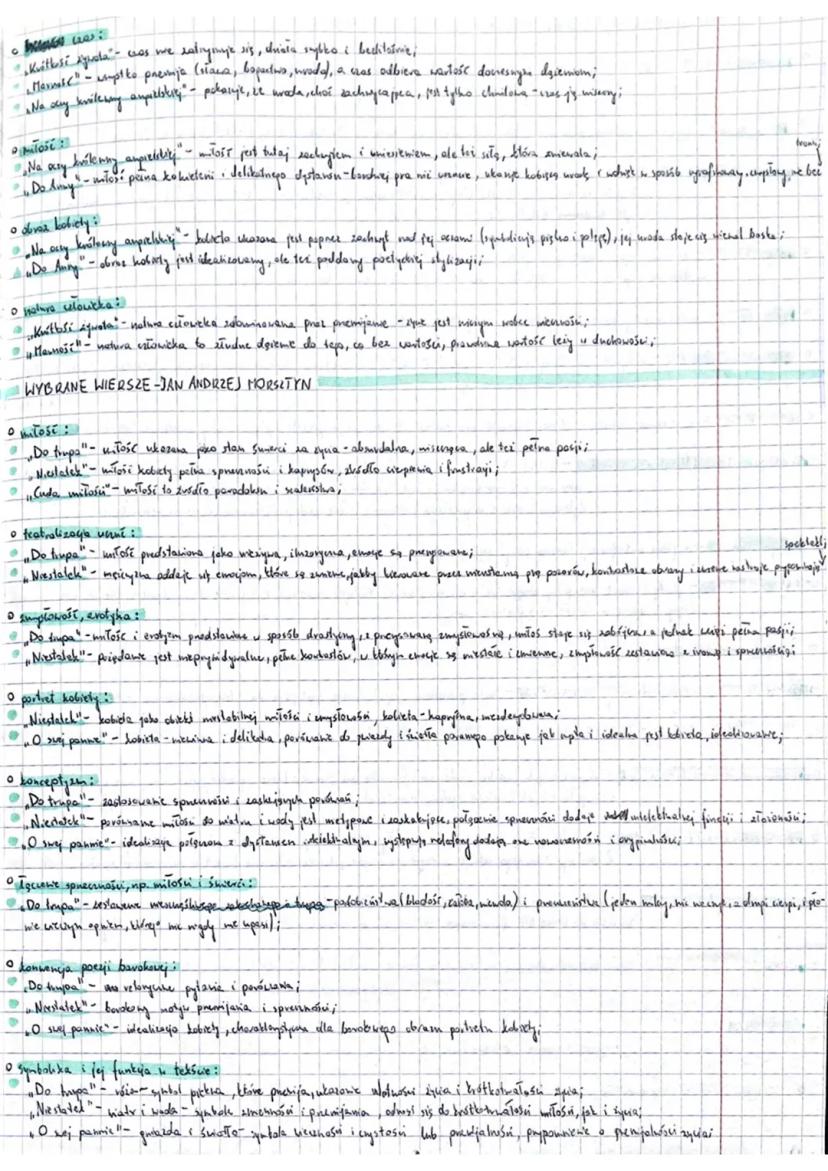 czas:
„Krótkość żywota" - czas nie zatrzymuje się, działa szybko i bezlitośnie;
„Marność" - wszystko przemija (sława, bogactwo, uroda), a czas odbiera wartość doczesnym dążeniom;
„Na oczy królewny angielskiej" - pokazuje, że uroda, choć zachwycająca, jest tylko chwilowa - czas ją zniszczy;
miłość:
„Na oczy królewny angielskiej" - miłość jest tutaj zachwytem i uniesieniem, ale też siłą, która zniewala;
„Do Anny" - miłość pełna i delikatnego dystansu - bardziej gra niż uczucie, ukazuje kobiecą urodę i wdzięk w sposób wyrafinowany, zmysłowy, nie bez
ironii
obraz kobiety:
„Na oczy królewny angielskiej" - kobieta ukazana jest poprzez zachwyt nad jej oczami (symbolizują piękno i potęgę), jej uroda staje się niemal boska;
„Do Anny" - obraz kobiety jest idealizowany, ale też poddany poetyckiej stylizacji;
natura człowieka:
„Krótkość żywota" - natura człowieka zdominowana przez przemijanie - życie jest niczym wobec wieczności;
„Marność" - natura człowieka to złudne dążenie do tego, co bez wartości, prawdziwa wartość leży w duchowości;
WYBRANE WIERSZE - JAN ANDRZEJ MORSZTYN
miłość:
„Do trupa" - miłość ukazana jako stan śmierci za życia - absurdalna, niszcząca, ale też pełna pasji;
„Niestatek" - miłość kobiety pełna sprzeczności i kaprysów, źródło cierpienia i frustracji;
„Cuda miłości" - miłość to źródło paradoksu i szaleństwa;
teatralizacja uczuć:
„Do trupa" - miłość przedstawiona jako, iluzoryczna, emocje są przerysowane;
„Niestatek" - mężczyzna oddaje się emocjom, które są zmienne, jakby kierowane przez nieustanną grę pozorów, kontrastowe obrazy i zmienne nastroje przypominają
spektakl;
zmysłowość, erotyka:
„Do trupa" - miłość i erotyzm przedstawione w sposób drastyczny, z przerysowaną zmysłowością, miłość staje się zabójcza, a jednak wciąż pełna pasji;
„Niestatek" - pożądanie jest nieprzewidywalne, pełne kontrastów, w którym emocje są niestałe i zmienne, zmysłowość zestawiona z ironią i sprzecznością;
portret kobiety:
„Niestatek" - kobieta jako obiekt niestabilnej miłości i zmysłowości, kobieta - kapryśna, niezdecydowana;
„O swej pannie" - kobieta - niewinna i delikatna, porównanie do gwiazdy i światła porannego pokazuje jak wątła i idealna jest kobieta, idealizowanie;
konceptyzm:
„Do trupa" - zastosowanie sprzeczności i zaskakujących porównań;
„Niestatek" - porównanie miłości do wiatru i wody jest nietypowe i zaskakujące, połączenie sprzeczności dodaje intelektualnej finezji i złożoności;
„O swej pannie" - idealizacja połączona z dystansem intelektualnym, występują metafory dodają one nowoczesności i oryginalności;
łączenie sprzeczności, np. miłości i śmierci:
„Do trupa" - zestawienie - podobieństwa (bladość, żałoba, niewola) i przeciwieństwa (jeden milczy, nic nie czuje, a drugi cierpi, i pło-
nie wiecznym ogniem, którego nic nigdy nie ugasi);
konwencja poezji barokowej:
„Do trupa" - retoryczne pytania i porównania;
„Niestatek" - barokowy motyw przemijania i sprzeczności;
„O swej pannie" - idealizacja kobiety, charakterystyczna dla barokowego obrazu portretu kobiety;
symbolika i jej funkcja w tekście:
„Do trupa" - symbol piękna, które przemija, ukazanie ulotności życia i krótkotrwałości życia;
„Niestatek" - wiatr i woda - symbole zmienności i przemijania, odnosi się do krótkotrwałości miłości, jak i życia;
„O swej pannie" - gwiazda i światło - symbole wieczności i czystości lub przemijalności, przypomnienie o przemijalności życia;